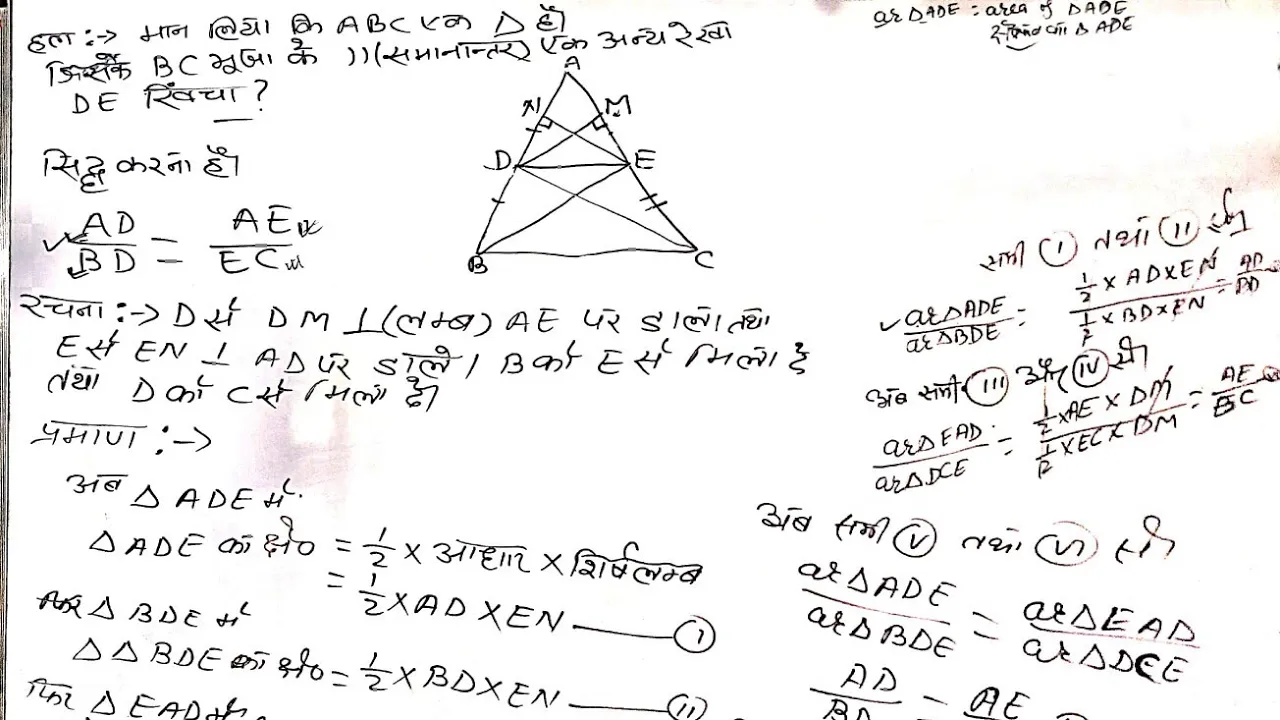 हल :→ मान लिया कि ABC एक Δ है।
जिसके BC भूजा के )) (समानान्तर) एक अन्य रेखा
DE खिंचा ?
सिद्ध करना है।
AD/BD = AE/EC
A
N M
D E
B C
रचना :→ D से DM ⊥ (लम्ब) AE पर डाला तथा
E से EN ⊥ AD पर डाले। B को E से मिला दे
तथा D को C से मिला दे।
प्रमाण :→
अब Δ ADE में
Δ ADE का क्षे० = 1/2 × आधार × शिर्षलम्ब
= 1/2 × AD × EN —— (i)
फिर Δ BDE में
Δ Δ BDE का क्षे० = 1/2 × BD × EN —— (ii)
फिर Δ EAD में
ar Δ ADE = area of Δ ADE
Δ ADE
समी (i) तथा (ii) से
arΔADE/arΔBDE = (1/2 × AD × EN)/(1/2 × BD × EN) = AD/BD
अब समी (iii) और (iv) से
arΔEAD/arΔDCE = (1/2 × AE × DM)/(1/2 × EC × DM) = AE/EC
अब समी (v) तथा (vi) से
arΔADE/arΔBDE = arΔEAD/arΔDCE
AD/BD = AE